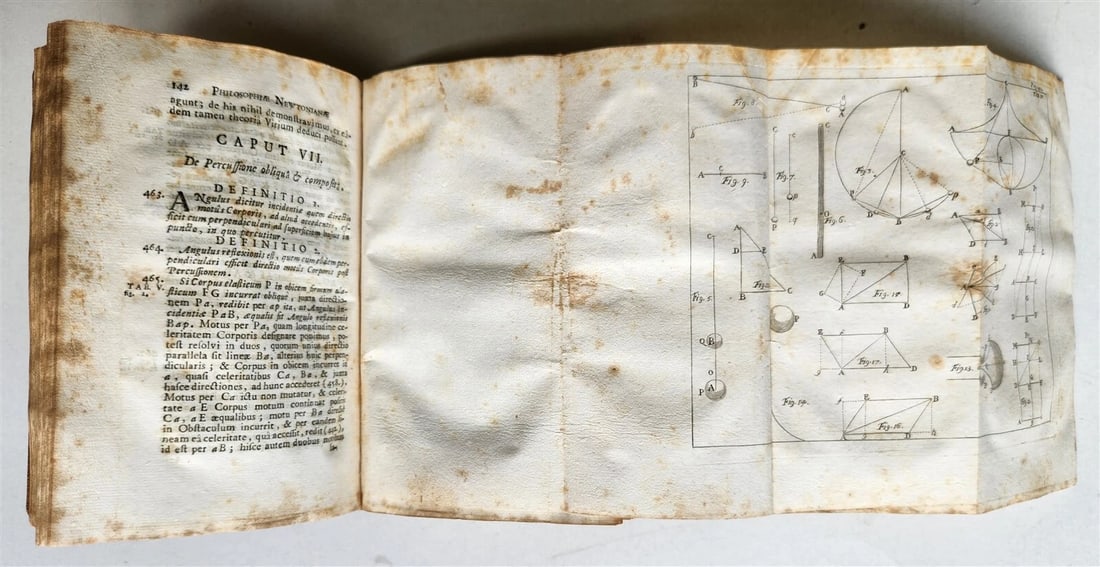 142 PHILOSOPHIÆ NEWTONIANÆ
agunt; de his nihil demonstravimus, ex ea-
dem tamen theoria Virium deduci possunt.
CAPUT VII.
De Percussione obliquâ & compositâ.
DEFINITIO 1.
463. ANgulus dicitur incidentiæ quem directio
motus Corporis, ad aliud accedentis, ef-
ficit cum perpendiculari ad superficiem hujus in
puncto, in quo percutitur.
DEFINITIO 2.
464. Angulus reflexionis est, quem cum eadem per-
pendiculari efficit directio motus Corporis post
Percussionem.
465. Si Corpus elasticum P in obicem firmum ela-
TAB. V.
sticum FG incurrat obliquè, juxta directio-
nem Pa, redibit per ap ita, ut Angulus in-
cidentiæ PaB, æqualis sit Angulo reflexionis
Bap. Motus per Pa, quam longitudine ce-
leritatem Corporis designare ponimus, po-
test resolvi in duos, quorum unius directio
parallela sit lineæ Ba, alterius huic perpen-
dicularis; & Corpus in obicem incurret in
a, quasi celeritatibus Ca, Ba, & juxta
hasce directiones, ad hunc accederet (458.).
Motus per Ca ictu non mutatur, & celeri-
tate aE Corpus motum continuat positis
Ca, aE æqualibus; motu per Ba directè
in Obstaculum incurrit, & per eandem li-
neam eâ celeritate, quâ accessit, redit
id est per aB; hisce autem duobus motibus
Fig. 8.
Fig. 9.
Fig. 7.
Fig. 6.
Fig. 5.
Fig. 15.
Fig. 17.
Fig. 14.
Fig. 16.
Fig. 13.